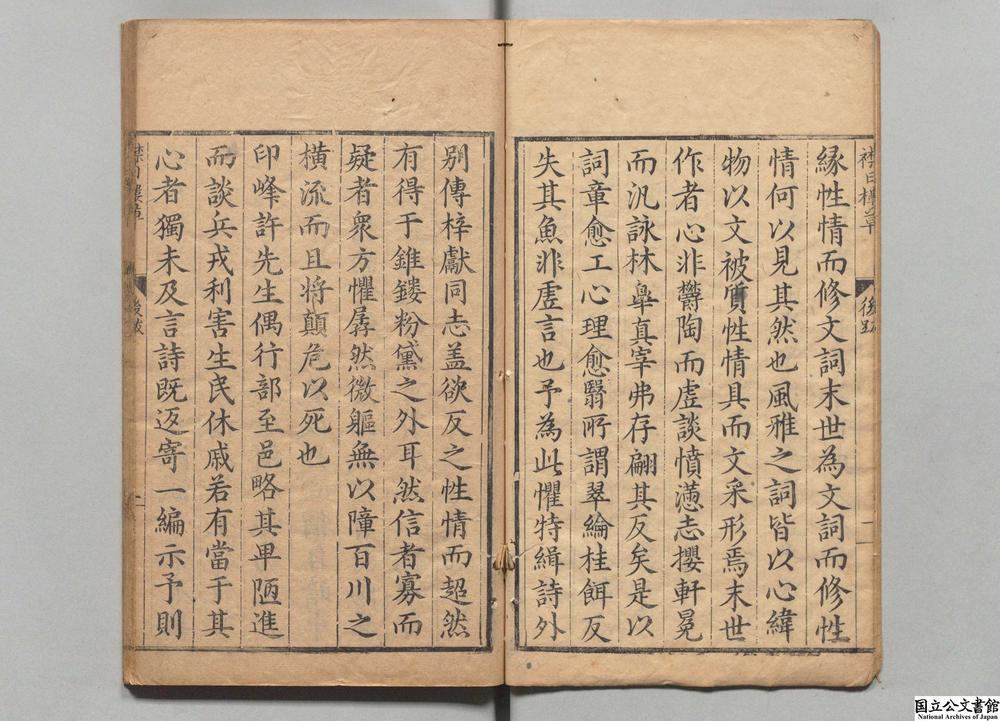 緣性情而修文詞末世為文詞而修性
情何以見其然也風雅之詞皆以心緯
物以文被質性情具而文采形焉末世
作者心非欝陶而虗談憤懣志攖軒冕
而汎詠林皐真宰弗存翩其反矣是以
詞章愈工心理愈翳所謂翠綸桂餌反
失其魚非虗言也予為此懼特緝詩外
後跋
一
別傳梓獻同志盖欲反之性情而超然
有得于錐鏤粉黛之外耳然信者寡而
疑者衆方懼孱然微軀無以障百川之
橫流而且将顛危以死也
印峰許先生偶行部至邑略其卑陋進
而談兵戎利害生民休戚若有當于其
心者獨未及言詩既返寄一編示予則
後跋
国立公文書館
National Archives of Japan